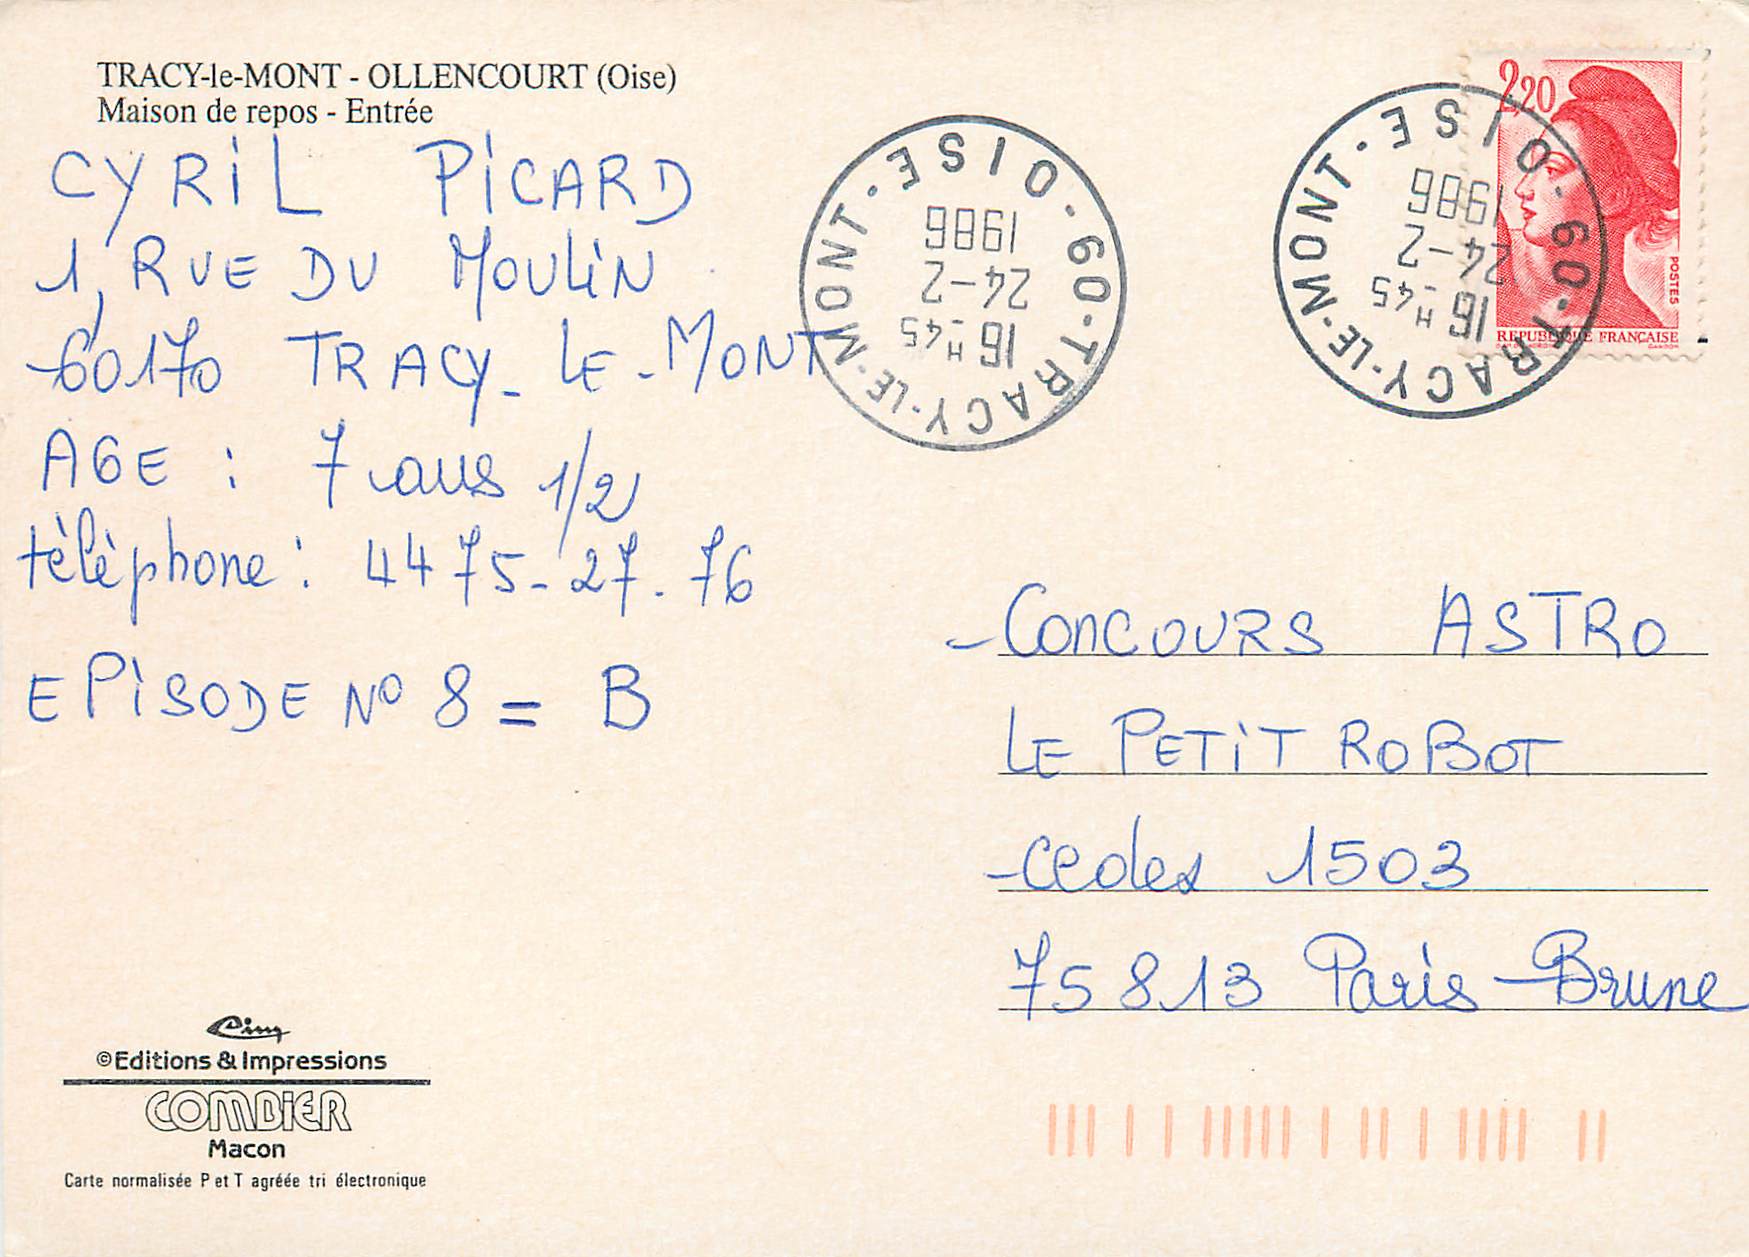 TRACY-le-MONT - OLLENCOURT (Oise)
Maison de repos - Entrée
CYRiL PiCARD
1, RUE DU MOULiN
60170 TRACY-LE-MONT
AGE : 7 ans 1/2
tèlèphone : 44 75-27.76
EPiSODE No 8 = B
60-TRACY-LE-MONT · OISE ·
16 H -45
24-2
1986
60-TRACY-LE-MONT · OISE ·
16 H -45
24-2
1986
2,20
POSTES
REPUBLIQUE FRANÇAISE
CONCOURS ASTRO
LE PETiT ROBOT
cedex 1503
75813 Paris-Brune
Cim
©Editions & Impressions
COMBIER
Macon
Carte normalisée P et T agréée tri électronique